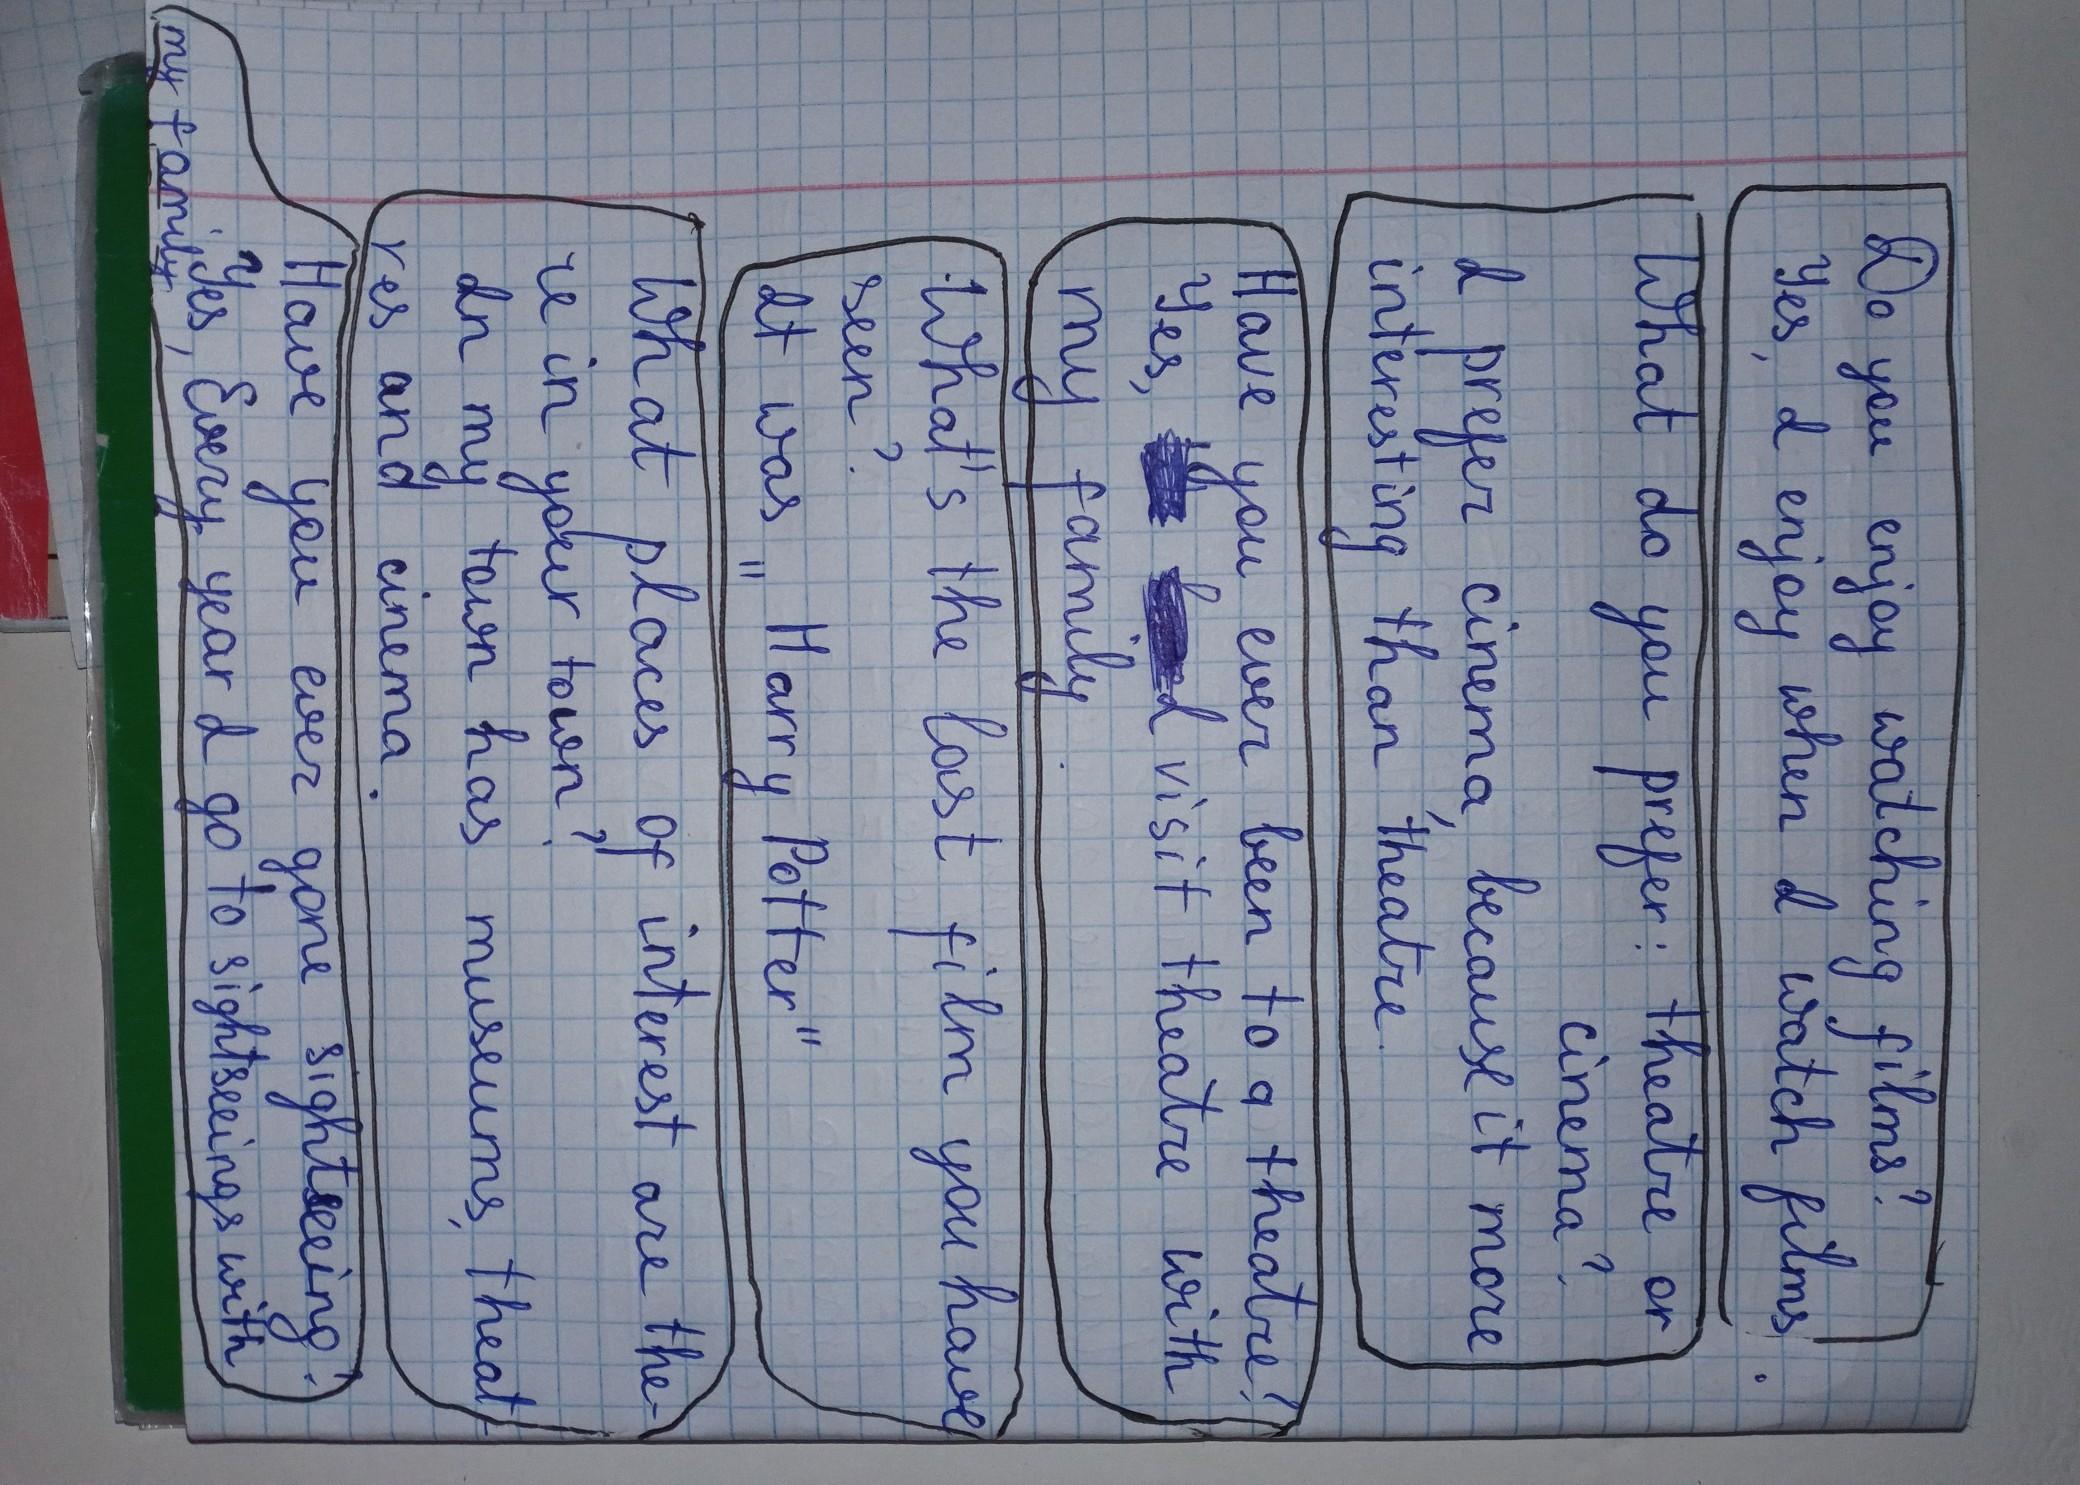 Do you enjoy watching films?
Yes, I enjoy when I watch films.
What do you prefer: theatre or
cinema?
I prefer cinema, because it more
interesting than theatre.
Have you ever been to a theatre?
Yes, I visit theatre with
my family.
What's the last film you have
seen?
It was "Harry Potter"
What places of interest are the-
re in your town?
In my town has museums, theat-
res and cinema.
Have you ever gone sightseeing?
Yes, Every year I go to sightseeings with
my family